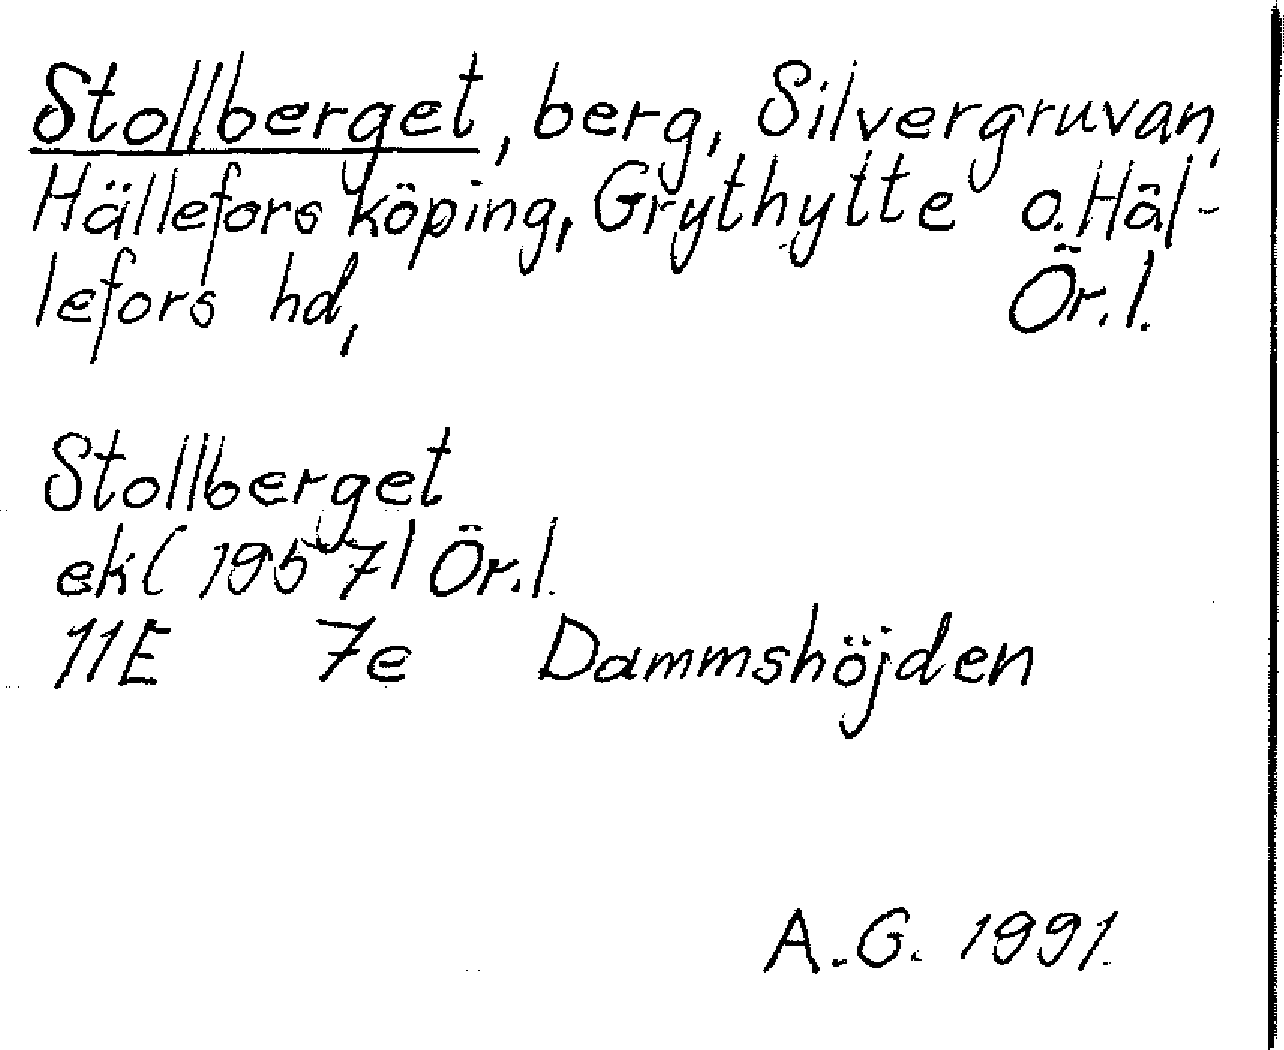 Stollberget, berg, Silvergruvan,
Hällefors köping, Grythytte o. Häl-
lefors hd, Ör. l.
Stollberget
ek (1957) Ör. l.
11E 7e Dammshöjden
A.G. 1991.